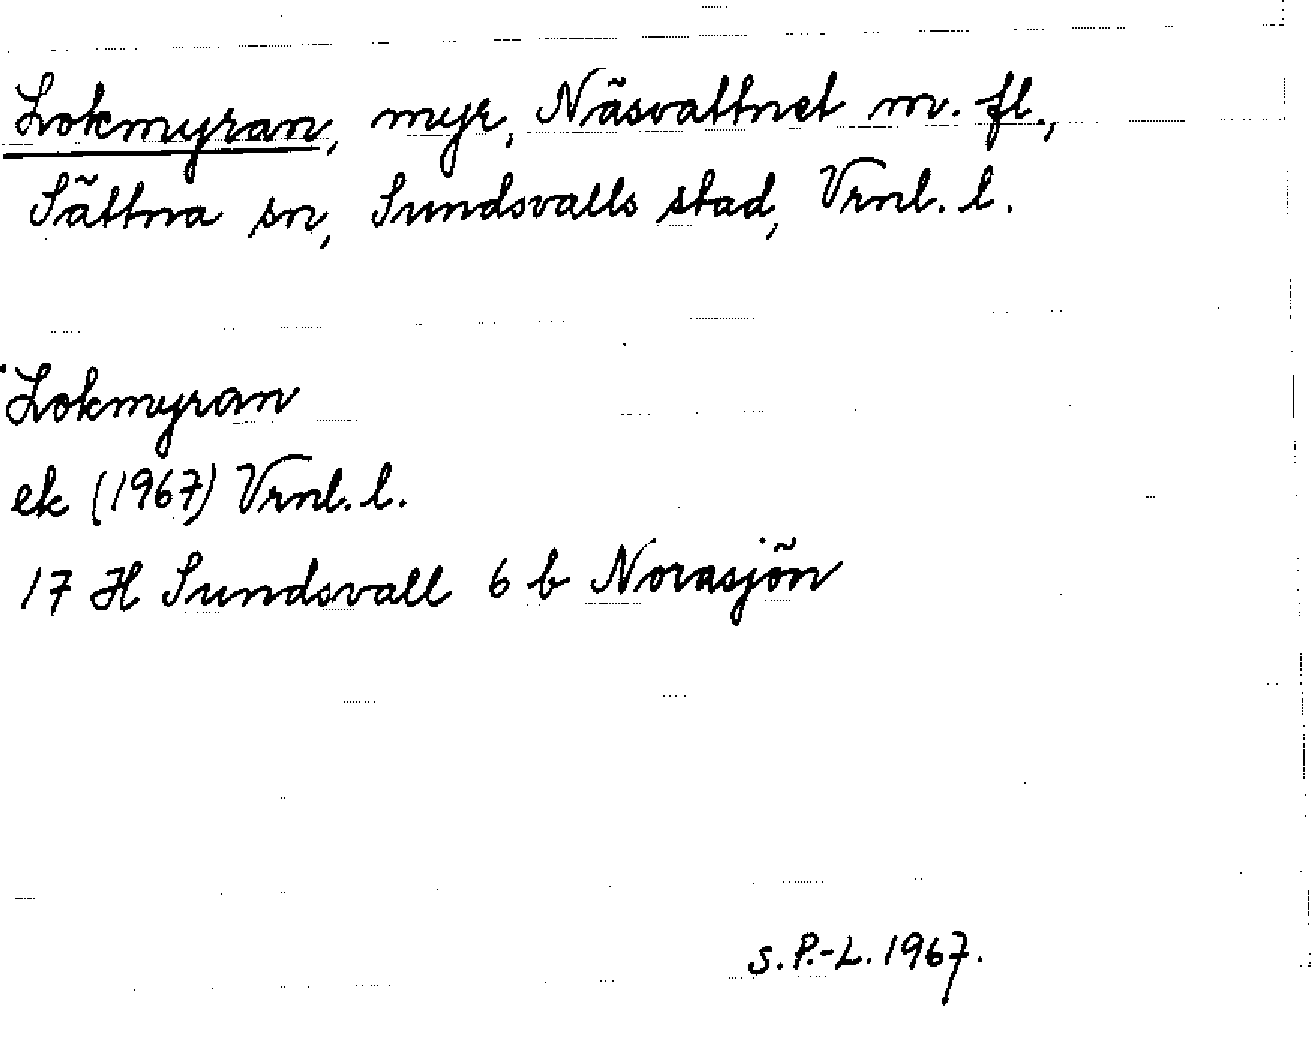 Lokmyran, myr, Näsvattnet m. fl.,
Sättna sn, Sundsvalls stad, Vrnl. l.
Lokmyran
ek (1967) Vrnl. l.
17 H Sundsvall 6 b Norasjön
S. P.-L. 1967.